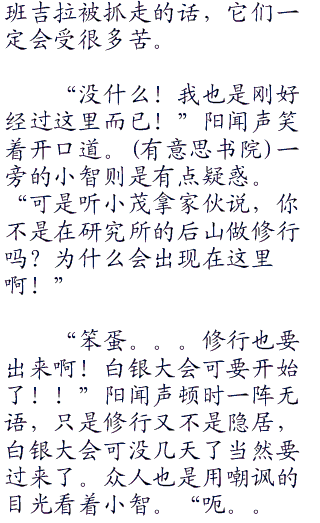 班吉拉被抓走的话，它们一
定会受很多苦。
“没什么！我也是刚好
经过这里而已！”阳闻声笑
着开口道。(有意思书院)一
旁的小智则是有点疑惑。
“可是听小茂拿家伙说，你
不是在研究所的后山做修行
吗？为什么会出现在这里
啊！”
“笨蛋。。。修行也要
出来啊！白银大会可要开始
了！！”阳闻声顿时一阵无
语，只是修行又不是隐居，
白银大会可没几天了当然要
过来了。众人也是用嘲讽的
目光看着小智。“呃。。